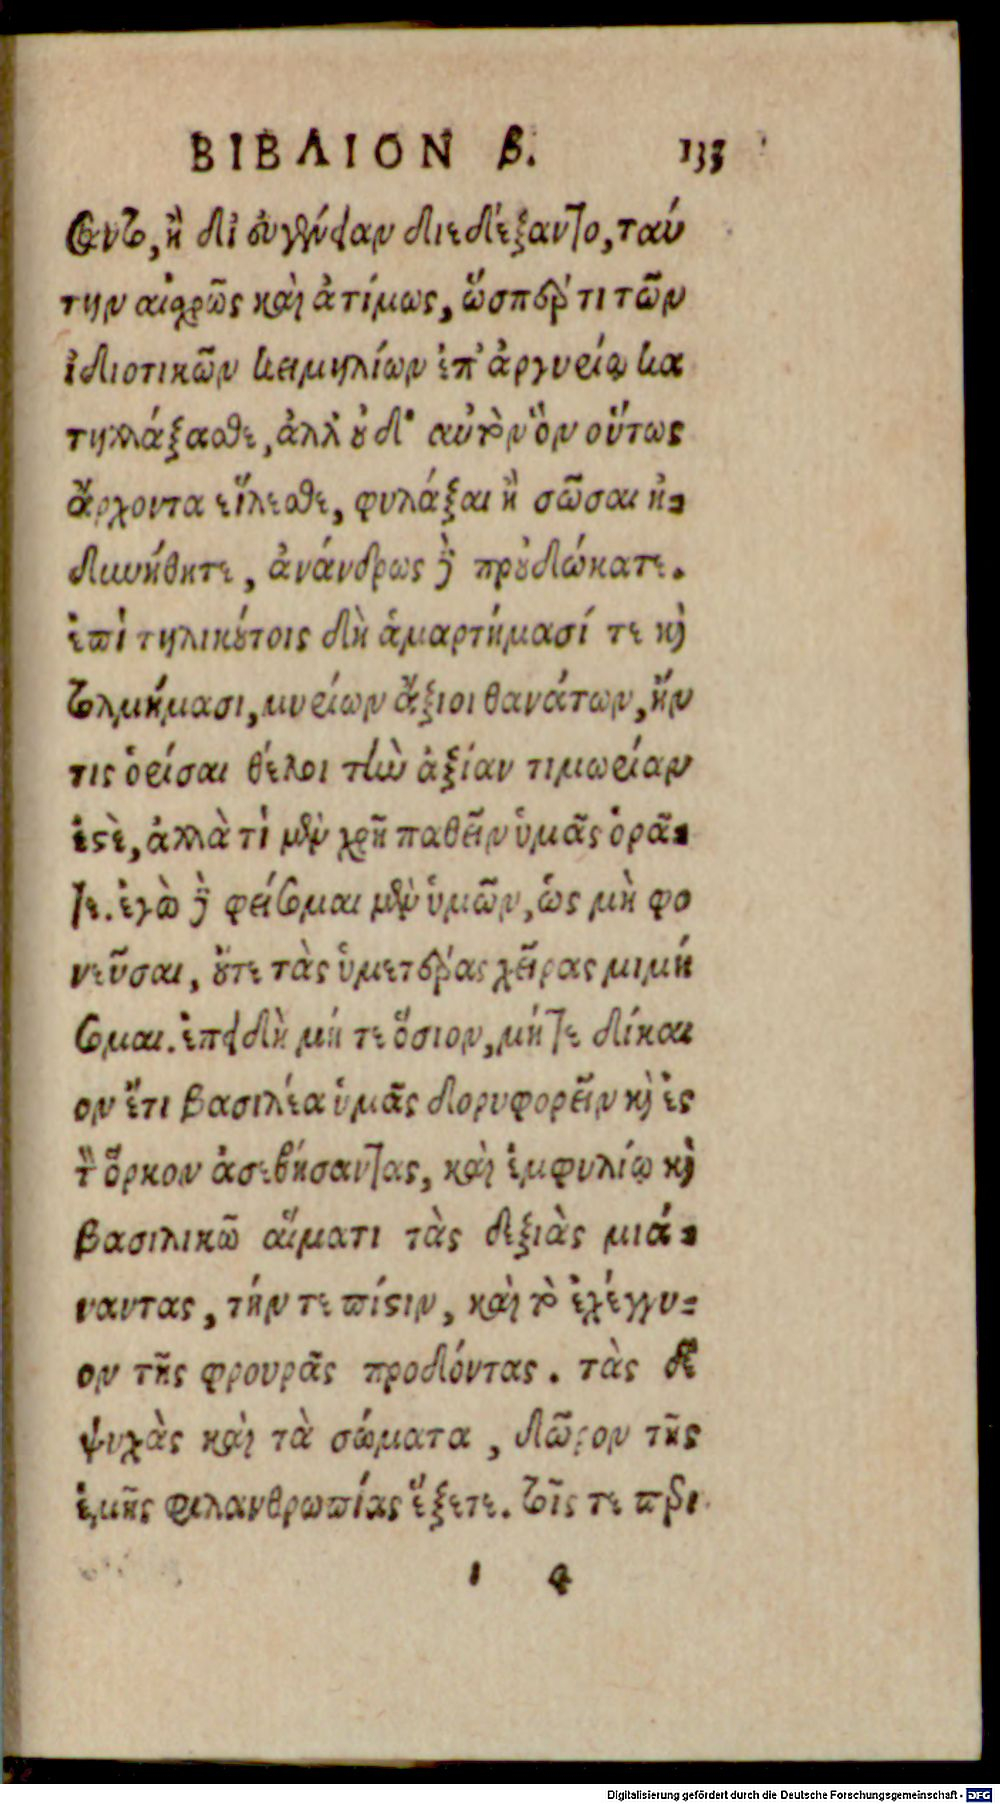 ΒΙΒΛΙΟΝ β. 133
σαντο, ἢ δι' εὐγένειαν διεδέξαντο, ταύ
την αἰσχρῶς καὶ ἀτίμως, ὥσπερ τι τῶν
ἰδιοτικῶν κειμηλίων ἐπ' ἀργυρίῳ κα
τηλλάξασθε, ἀλλ' οὐδ' αὐτὸν ὃν οὕτως
ἄρχοντα εἵλεσθε, φυλάξαι ἢ σῶσαι ἠ-
δυνήθητε, ἀνάνδρως δὲ προὐδώκατε.
ἐπὶ τηλικούτοις δὴ ἁμαρτήμασί τε καὶ
τολμήμασι, μυρίων ἄξιοι θανάτων, ἤν
τις ὁρίσαι θέλοι τὴν ἀξίαν τιμωρίαν
ἐστὲ, ἀλλὰ τί μὲν χρῆ παθεῖν ὑμᾶς ὁρᾶ-
τε. ἐγὼ δὲ φείσομαι μὲν ὑμῶν, ὡς μὴ φο
νεῦσαι, οὔτε τὰς ὑμετέρας χεῖρας μιμή
σομαι. ἐπεὶ δὴ μή τε ὅσιον, μήτε δίκαι
ον ἔτι βασιλέα ὑμᾶς δορυφορεῖν καὶ ἐς
τὸν ὅρκον ἀσεβήσαντας, καὶ ἐμφυλίῳ καὶ
βασιλικῶ αἵματι τὰς δεξιὰς μιά-
ναντας, τήν τε πίστιν, καὶ τὸ ἐχέγγυ-
ον τῆς φρουρᾶς προδόντας. τὰς δὲ
ψυχὰς καὶ τὰ σώματα, δῶρον τῆς
ἐμῆς φιλανθρωπίας ἕξετε. τοῖς τε περι
ι 4
Digitalisierung gefördert durch die Deutsche Forschungsgemeinschaft - DFG